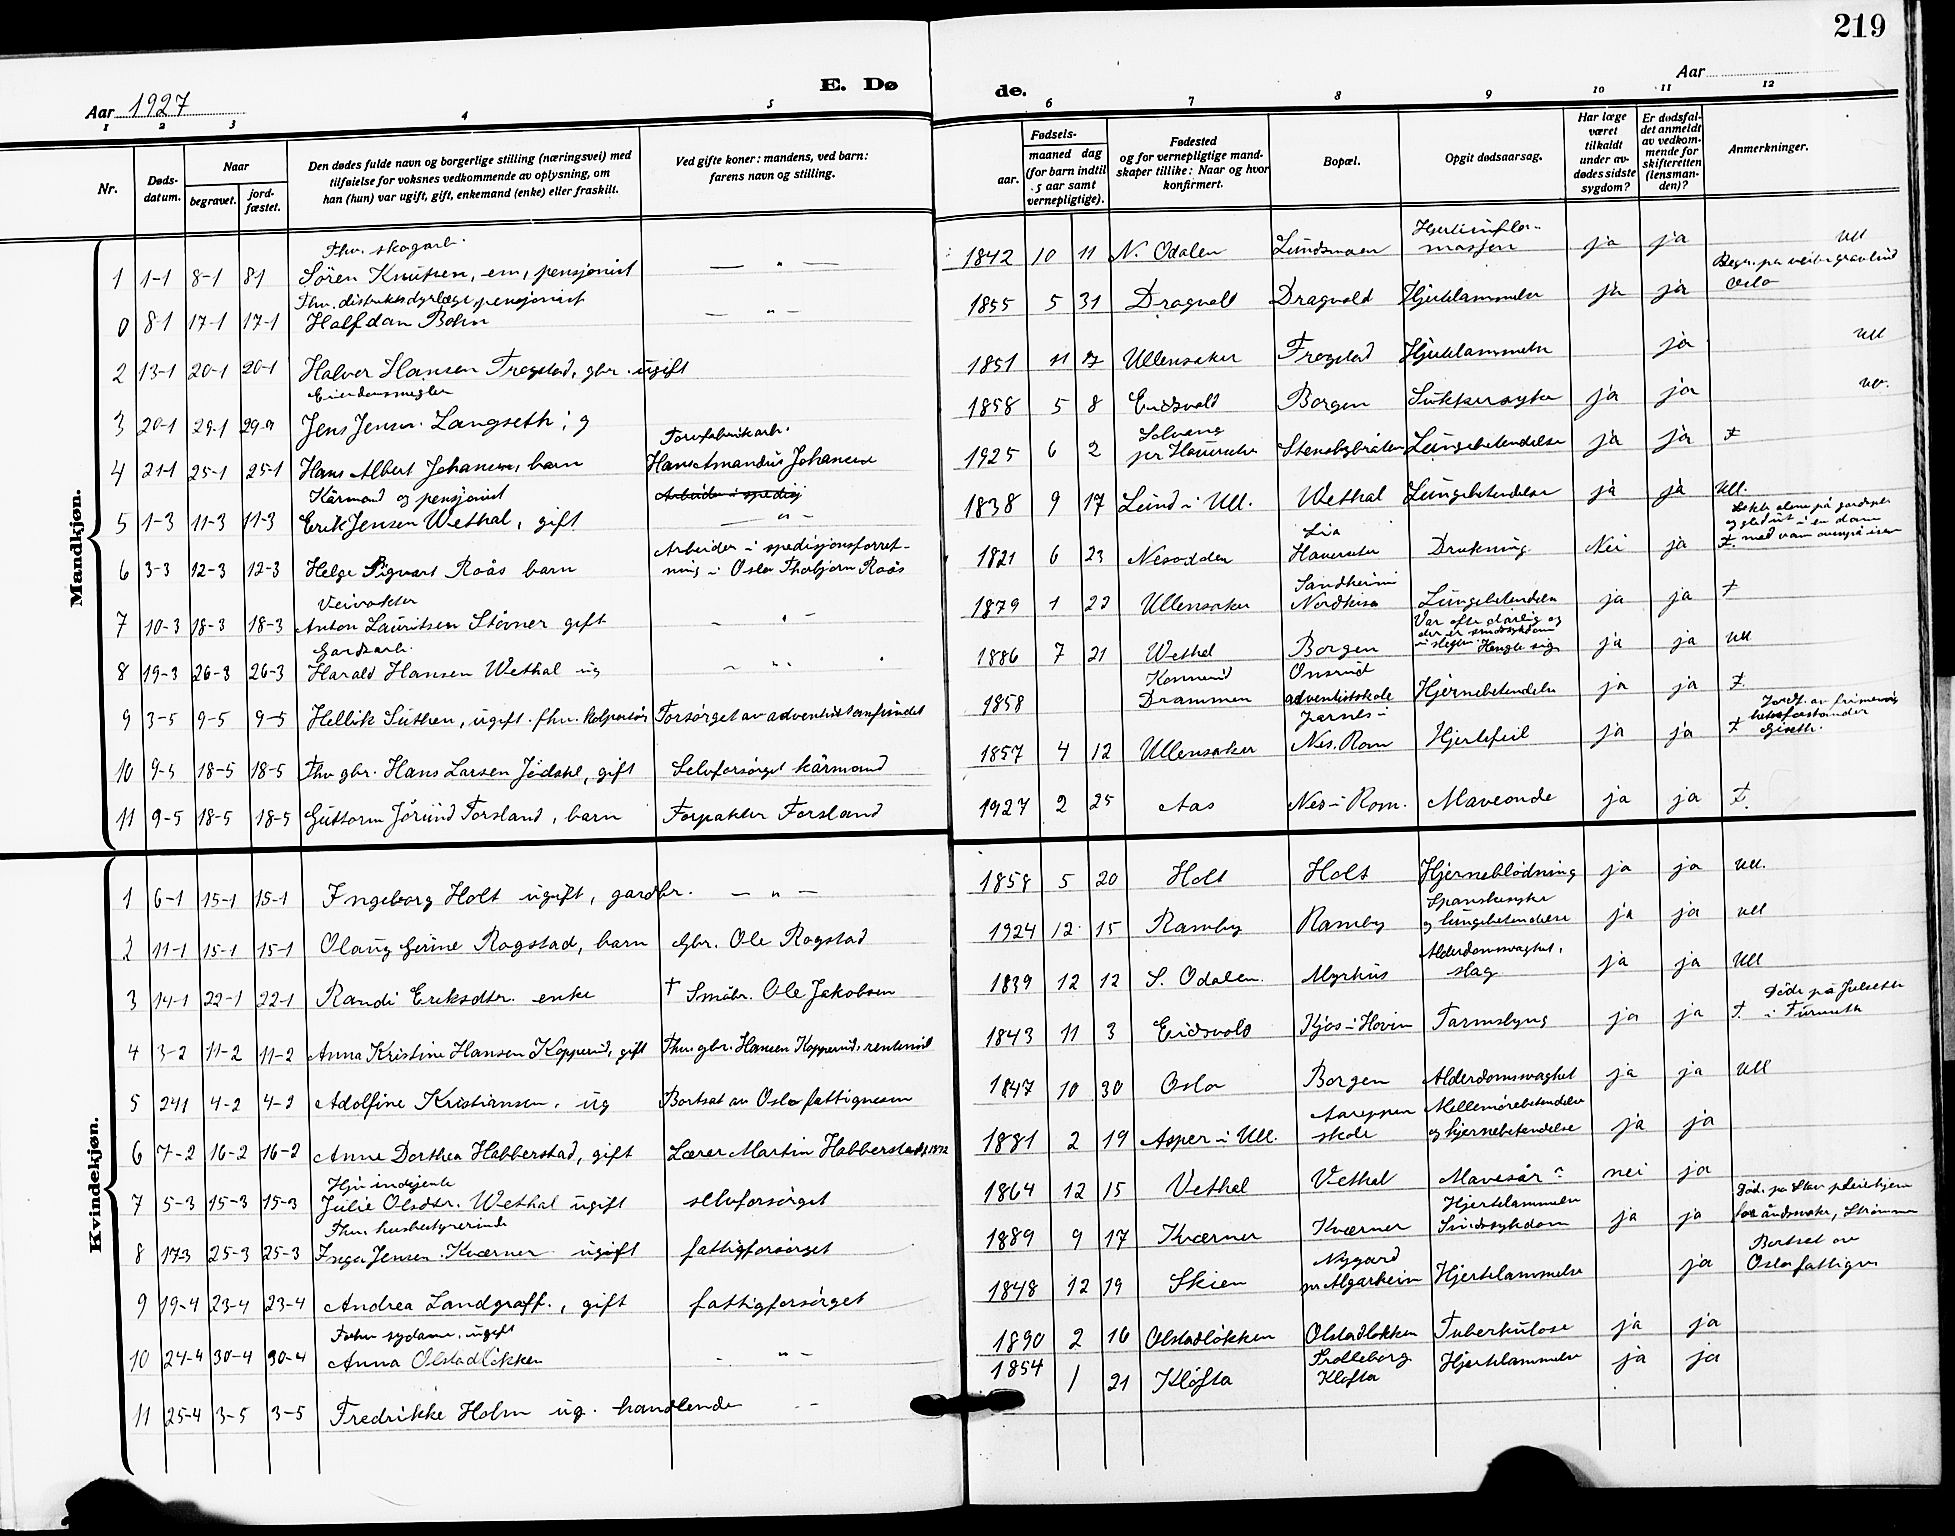 219
E. Døde.
Aar 1927
Aar
1 2 3 4 5 6 7 8 9 10 11 12
Nr.
Døds-datum.
Naar
begravet.
jord-fæstet.
Den dødes fulde navn og borgerlige stilling (næringsvei) med
tilføielse for voksnes vedkommende av oplysning, om
han (hun) var ugift, gift, enkemand (enke) eller fraskilt.
Ved gifte koner: mandens, ved barn:
farens navn og stilling.
Fødsels-
aar.
maaned dag
(for barn indtil
5 aar samt
vernepligtige).
Fødested
og for vernepligtige mand-
skaper tillike: Naar og hvor
konfirmert.
Bopæl.
Opgit dødsaarsag.
Har læge
været
tilkaldt
under av-
dødes sidste
sygdom?
Er dødsfal-
det anmeldt
av vedkom-
mende for
skifteretten
(lensman-
den)?
Anmerkninger.
Mandkjøn.
1 1-1 8-1 8-1 Fhv. skogarb. Sören Knutsen, em, pensjonist — " — 1842 10 11 N. Odalen Lundsmoen ja ja Ull
0 8-1 17-1 17-1 Fhv. distriktsdyrlæge, pensjonist Halfdan Bohn — " — 1855 5 31 Dragvold Dragvold Hjertelammelse ja ja Oslo
2 13-1 20-1 20-1 Halvor Hansen Trogstad, gbr. ugift 1851 11 Ullensaker Trogstad Hjertelammelse ja Ull
3 20-1 29-1 Eiendomsmegler Jens Jensen Langseth, g 1858 5 8 Eidsvold Borgen Sukkersyke ja ja Ull.
4 21-1 25-1 25-1 Hans Albert Johansen, barn Torvfabrikarb. Hans Amandus Johansen 1925 6 2 Solvang pr Hauerseter Stensbybråten Lungebetendelse ja ja ±
5 1-3 11-3 11-3 Kårmand og pensjonist Erik Jensen Wethal, gift Arbeider i spedisj — " — 1838 9 17 Lund i Ull. Wethal Lungebetendelse ja ja Ull.
6 3-3 12-3 12-3 Helge Sigvart Roås barn Arbeider i spedisjonsforret-ning i Oslo Thorbjørn Roås 1921 6 23 Nesodden Lia Hauerseter Drukning Nei ja
7 10-3 18-3 18-3 Veivokter Anton Lauritsen Stövner gift - " - 1879 1 22 Ullensaker Sandheim Nordkisa Lungebetendelse ja ja ±
8 19-3 26-3 26-3 Gardsarb. Harald Hansen Wethal ug - " - 1886 7 21 Wethal Borgen Var ofte dårlig og der er sindssykdom i slegten. Hengte sig ja ja Ull
9 3-5 9-5 9-5 Hellik Suthen, ugift. fhv. kolportör Forsørget av adventistsamfundet 1858 Konnerud Drammen Onsrud adventistskole Hjernebetendelse ja ja ±
10 9-5 18-5 18-5 Fhv gbr. Hans Larsen Jödahl, gift Selvforsørget kårmand 1857 4 12 Ullensaker Jarnes i Nes. Rom Hjertefeil ja ja ±
11 9-5 18-5 18-5 Guttorm Jörund Forsland, barn Forpakter Forsland 1927 2 25 Aas Nes i Rom. Maveonde ja ja ±
Kvindekjøn.
1 6-1 15-1 15-1 Ingeborg Holt ugift, gardbr. — " — 1858 5 20 Holt Holt Hjerneblödning ja ja Ull.
2 11-1 15-1 15-1 Olaug Gerine Rogstad, barn Gbr. Ole Rogstad 1924 12 15 Ramby Ramby Spanskesyke og lungebetendelse ja ja Ull
3 14-1 22-1 22-1 Randi Eriksdtr. enke † Småbr. Ole Jakobsen 1839 12 12 S. Odalen. Myrhus Alderdomsvaghet, slag ja ja Ull
4 3-2 11-2 11-2 Anna Kristine Hansen Kopperud, gift Fhv. gbr. Hansen Kopperud, rentenist 1843 11 3 Eidsvold Kjos i Hovin Tarmslyng ja ja ± Døde på Julseth i Furuseth
5 24-1 4-2 4-2 Adolfine Kristiansen. ug Bortsat av Oslo fattigvesen 1847 10 30 Oslo Borgen Alderdomsvaghet ja ja Ull
6 7-2 16-2 16-2 Anne Dorthea Habberstad, gift Lærer Martin Habberstad 1881 2 19 Asper i Ull. Aareppen skole Mellemörebetendelse og hjernebetendelse ja ja
7 5-3 15-3 15-3 Julie Olsdtr. Wethal ugift selvforsörget 1864 12 15 Vethal Vethal Mavesår? nei ja
8 17-3 25-3 25-3 Fhv. husbestyrerinde Inga Jensen Kværner ugift fattigforsörget 1889 9 17 Kværner Kværner Hjertelammelse Sindssykdom ja ja
9 19-4 23-4 23-4 Andrea Landgraff., gift fattigforsörget 1848 12 19 Skien Nygard pr Algarheim Hjertelammelse ja Bortsat av Oslo fattigv
10 24-4 30-4 30-4 Forhv sydame, ugift Anna Olstadlökken - " - 1890 2 16 Olstadlökken Olstadlokken Tuberkulose ja ja
11 25-4 3-5 3-5 Fredrikke Holm ug. handlende - - 1854 1 21 Klöfta Trolleborg Klöfta Hjertelammelse ja ja